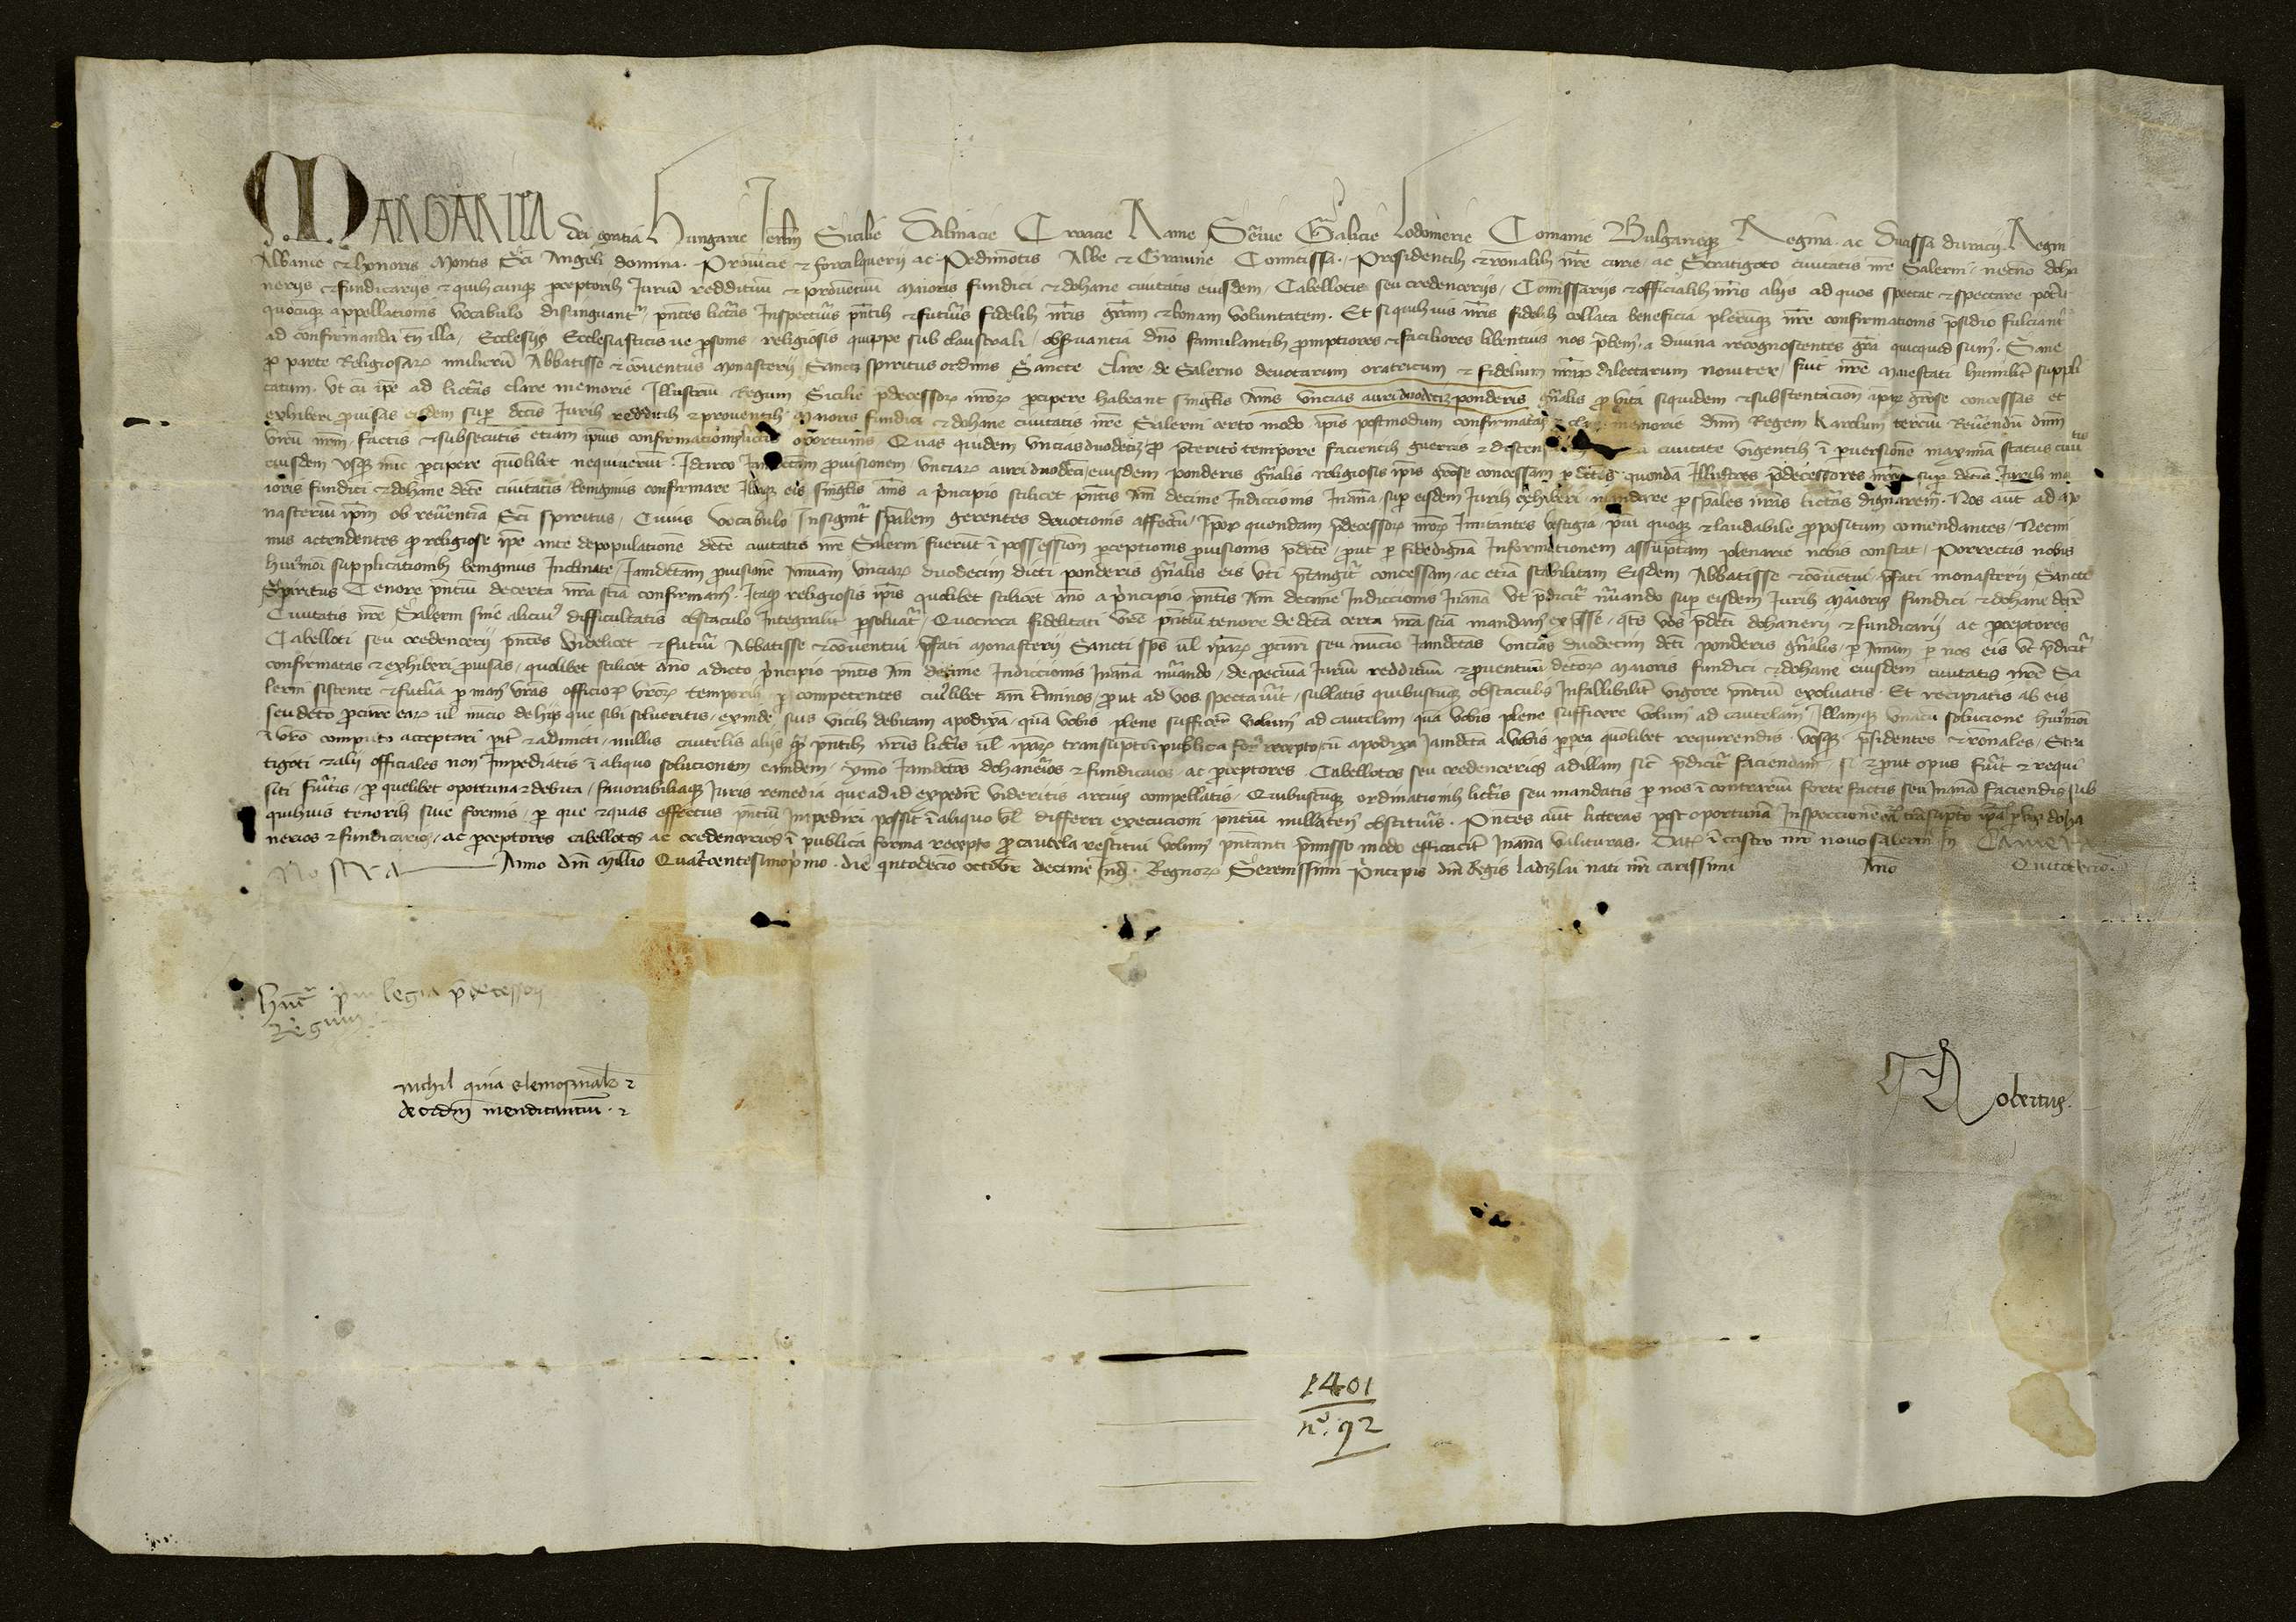 MARGARITA dei gratia Hungarie Ierlm Sicilie Dalmacie Croacie Rame Seruie Galicie Lodomerie Comanie Bulgarieq Regina ac Ducissa duracij Regni
Albanie et honoris Montis Sci Angeli domina. Prouincie et forcalquerij ac Pedimontis Albe et Comitissa. Presidentib et ronalib nre curie, ac Stratigoto ciuitatis nre Salerni, necno doha
nerijs et fundicarijs et quibuscunq perceptorib Iuriu reddituu et prouentuu maioris fundici et dohane ciuitatis eiusdem, Cabellotis seu credencerijs, Comissarijs et officialib nris alijs ad quos spectat et spectare poterit
quocuq appellationis vocabulo distinguant pntes licteras Inspecturis pntib et futuris fidelib nris gram et bonam voluntatem. Et si quibuis nris fidelib collata beneficia plerunq nre confirmationis psidio fulciant
ad confirmanda tn illa, Ecclesijs Ecclesiasticis ue psonis, religiosis quippe sub claustrali obseruantia dno famulantib promptiores et faciliores libentius nos prebem, a diuina recognoscentes gra quicquid sum. Sane
p parte Religiosar mulieru Abbatisse et conuentus monasterij Sancti spiritus ordinis Sancte Clare de Salerno deuotarum oratricum et fidelium nrar dilectarum nouiter, fuit nre maiestati humilit suppli
catum. Ut cu ipe ad licteras clare memorie Illustriu Regum Sicilie pdecessor nror percipere habeant singlis annis vncias auri duodecim ponderis gnalis p vita siquidem et substentacion ipar grose concessas et
exhiberi prouisas eisdem sup dictis Iurib redditib et prouentib maioris fundici et dohane ciuitatis nre Salerni certo modo ipis postmodum confirmatas clare memorie dnm Regem Karolum terciu Reuerendu dnm
viru nrm, factis et subsecutis etiam ipius confirmationis licteris oportunis Quas quidem vncias duodecim p preterito tempore facientib guerris et dissen a ciuitate vigentib i peruersione maxima status ciuitatis
eiusdem vsq nuc percipere quolibet nequiuerut. Idcirco Iamdictam prouisionem, vnciar auri duodeci eiusdem ponderis gnalis religiosis ipis grose concessam p dictos quonda Illustres pdecessores nros sup dictis Iurib ma
ioris fundici et dohane dicte ciuitatis benignius confirmare Illasq eis singlis annis a principio scilicet pntis anni decime Indiccionis Inantea sup eisdem Iurib exhiberi mandare p spales nras licteras dignarem. Nos aut ad mo
nasteriu ipm ob reuerentia Sci spiritus, Cuius Vocabulo Insignit spalem gerentes deuotionis affectu, Ipor quondam pdecessor nror Imitantes vestigia, piu quoq et laudabile propositum comendantes, Necmi
nus actendentes q religiose ipe ante depopulatione dicte ciuitatis nre Salerni fuerut i possession perceptionis prouisionis pdicte, prout p fidedigna Informationem assumptam plenarie nobis constat, Porrectis nobis
huiusmoi supplicationib benignius Inclinate, Iamdictam prouisione annuam vnciar duodecim dicti ponderis gnalis eis vti ptangit concessam, ac etia stabilitam Eisdem Abbatisse et conuentui pfati monasterij Sancti
Spiritus Tenore pntiu de certa nra scia confirmam. Itaq religiosis ipis quolibet scilicet anno a principio pntis anni decime Indiccionis Inantea vt pdicit numerando sup eisdem Iurib maioris fundici et dohane dicte
Ciuitatis nre Salerni sine alicuius difficultatis obstaculo Integralit psoluat, Quocirca fidelitati vre pntiu tenore de dicta certa nra scia mandam expsse, qtus vos pdicti dohanerij et fundicarij ac perceptores
Cabelloti seu credencerij pntes videlicet et futuri Abbatisse et conuentui pfati monasterij Sancti sps vl ipar procuri seu nuncio Iamdictas vncias duodecim dicti ponderis gnalis, p annum p nos eis vt pdicit
confirmatas et exhiberi prouisas, quolibet scilicet anno a dicto principio pntis anni decime Indiccionis Inantea numerando, de pecunia Iuriu reddituu et prouentuu dictor maioris fundici et dohane eiusdem ciuitatis nre Sa
lerni sistente et futura p manus vras officior vror temporib, p competentes cuiuslibet anni terminos, prout ad vos spectauerit, sublatis quibuscuq obstaculis Infallibilit vigore pntiu exoluatis. Et recipiatis ab eis
seu dicto procure ear vl nuncio de hijs que sibi solueritis, exinde, suis vicib debitam apodixa, qua vobis plene sufficere volum ad cautelam qua vobis plene sufficere volum ad cautelam Illamq vnacu solucione huiusmoi
i vro computo acceptari perit et admicti, nullis cautelis alijs q pntib nris licteris vl ipar transumpto i publica forma recepto, cu apodixa Iamdicta a vobis p quolibet requirendis. Vosq psidentes et ronales, Stra
tigoti et alij officiales non Impediatis i aliquo solucionem eamdem, ymo Iamdictos dohanerios et fundicarios, ac perceptores, Cabellotos seu credencerios ad illam sic pdicit faciendam, si et prout opus fuerit et requi
siti fueritis, p quelibet oportuna et debita, fauorabiliaq Iuris remedia que ad id expedire videritis arcius compellatis, Quibuscuq ordinationib licteris seu mandatis p nos i contrariu forte factis seu Inantea faciendis sub
quibusuis tenorib siue formis, p que et quas effectus pntiu Impediri possit i aliquo vl differri execucioni pntiu nullaten obstituris. Pntes aut licteras post oportuna Inspeccione transumpto p vos doha
nerios et fundicarios, ac perceptores cabellotos ac credencerios i publica forma recepto p cautela restitui volum pntanti pmisso modo efficacit Inantea valituras. Dat i castro nro nouo Salerni In CAMERA
NOSTRA Anno dni Millio Quatrcentesimo primo. die quintodecio octobr decime Ind. Regnor Serenissimi Principis dni Regis ladizlai nati nri carissimi Anno Quintodecio.
Hnt priuilegia pdecessor
Regum
nichil quia elemosinale
de ordin mendicantiu.
Robertus.
1401
n.º 92